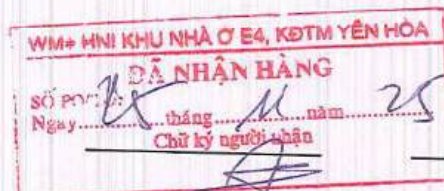 WM+ HNI KHU NHÀ Ở E4, KĐTM YÊN HÒA
ĐÃ NHẬN HÀNG
SỐ
Ngày 25 tháng 11 năm 25
Chữ ký người nhận